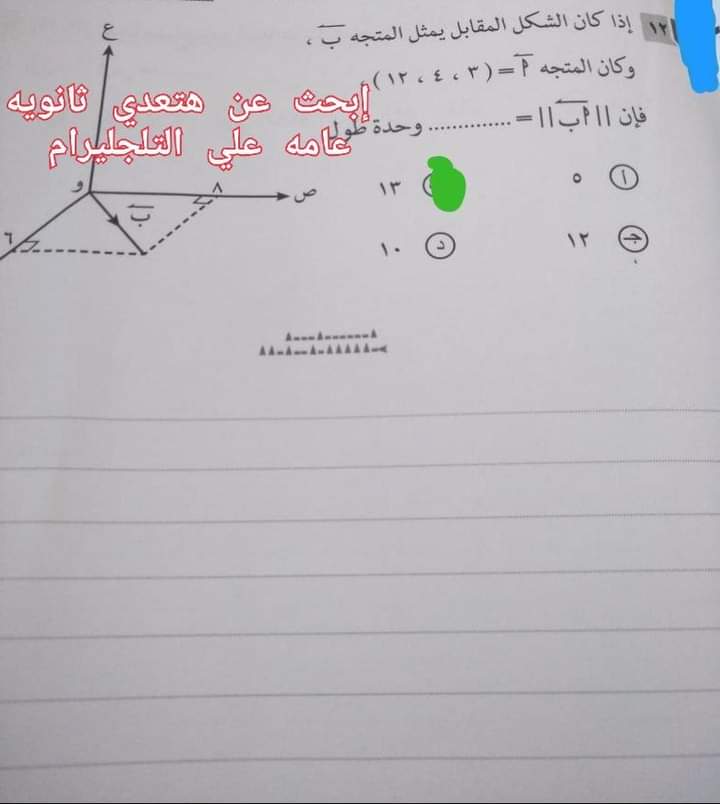 ١٢ إذا كان الشكل المقابل يمثل المتجه ب ،
وكان المتجه أ = (٣ ، ٤ ، ١٢) ،
فإن || أب || = .............. وحدة طول
أ ٥
١٣
ج ١٢
د ١٠
ع
و
٨
ص
ب
٦
إبحث عن هتعدي ثانويه
عامه علي التلجليرام